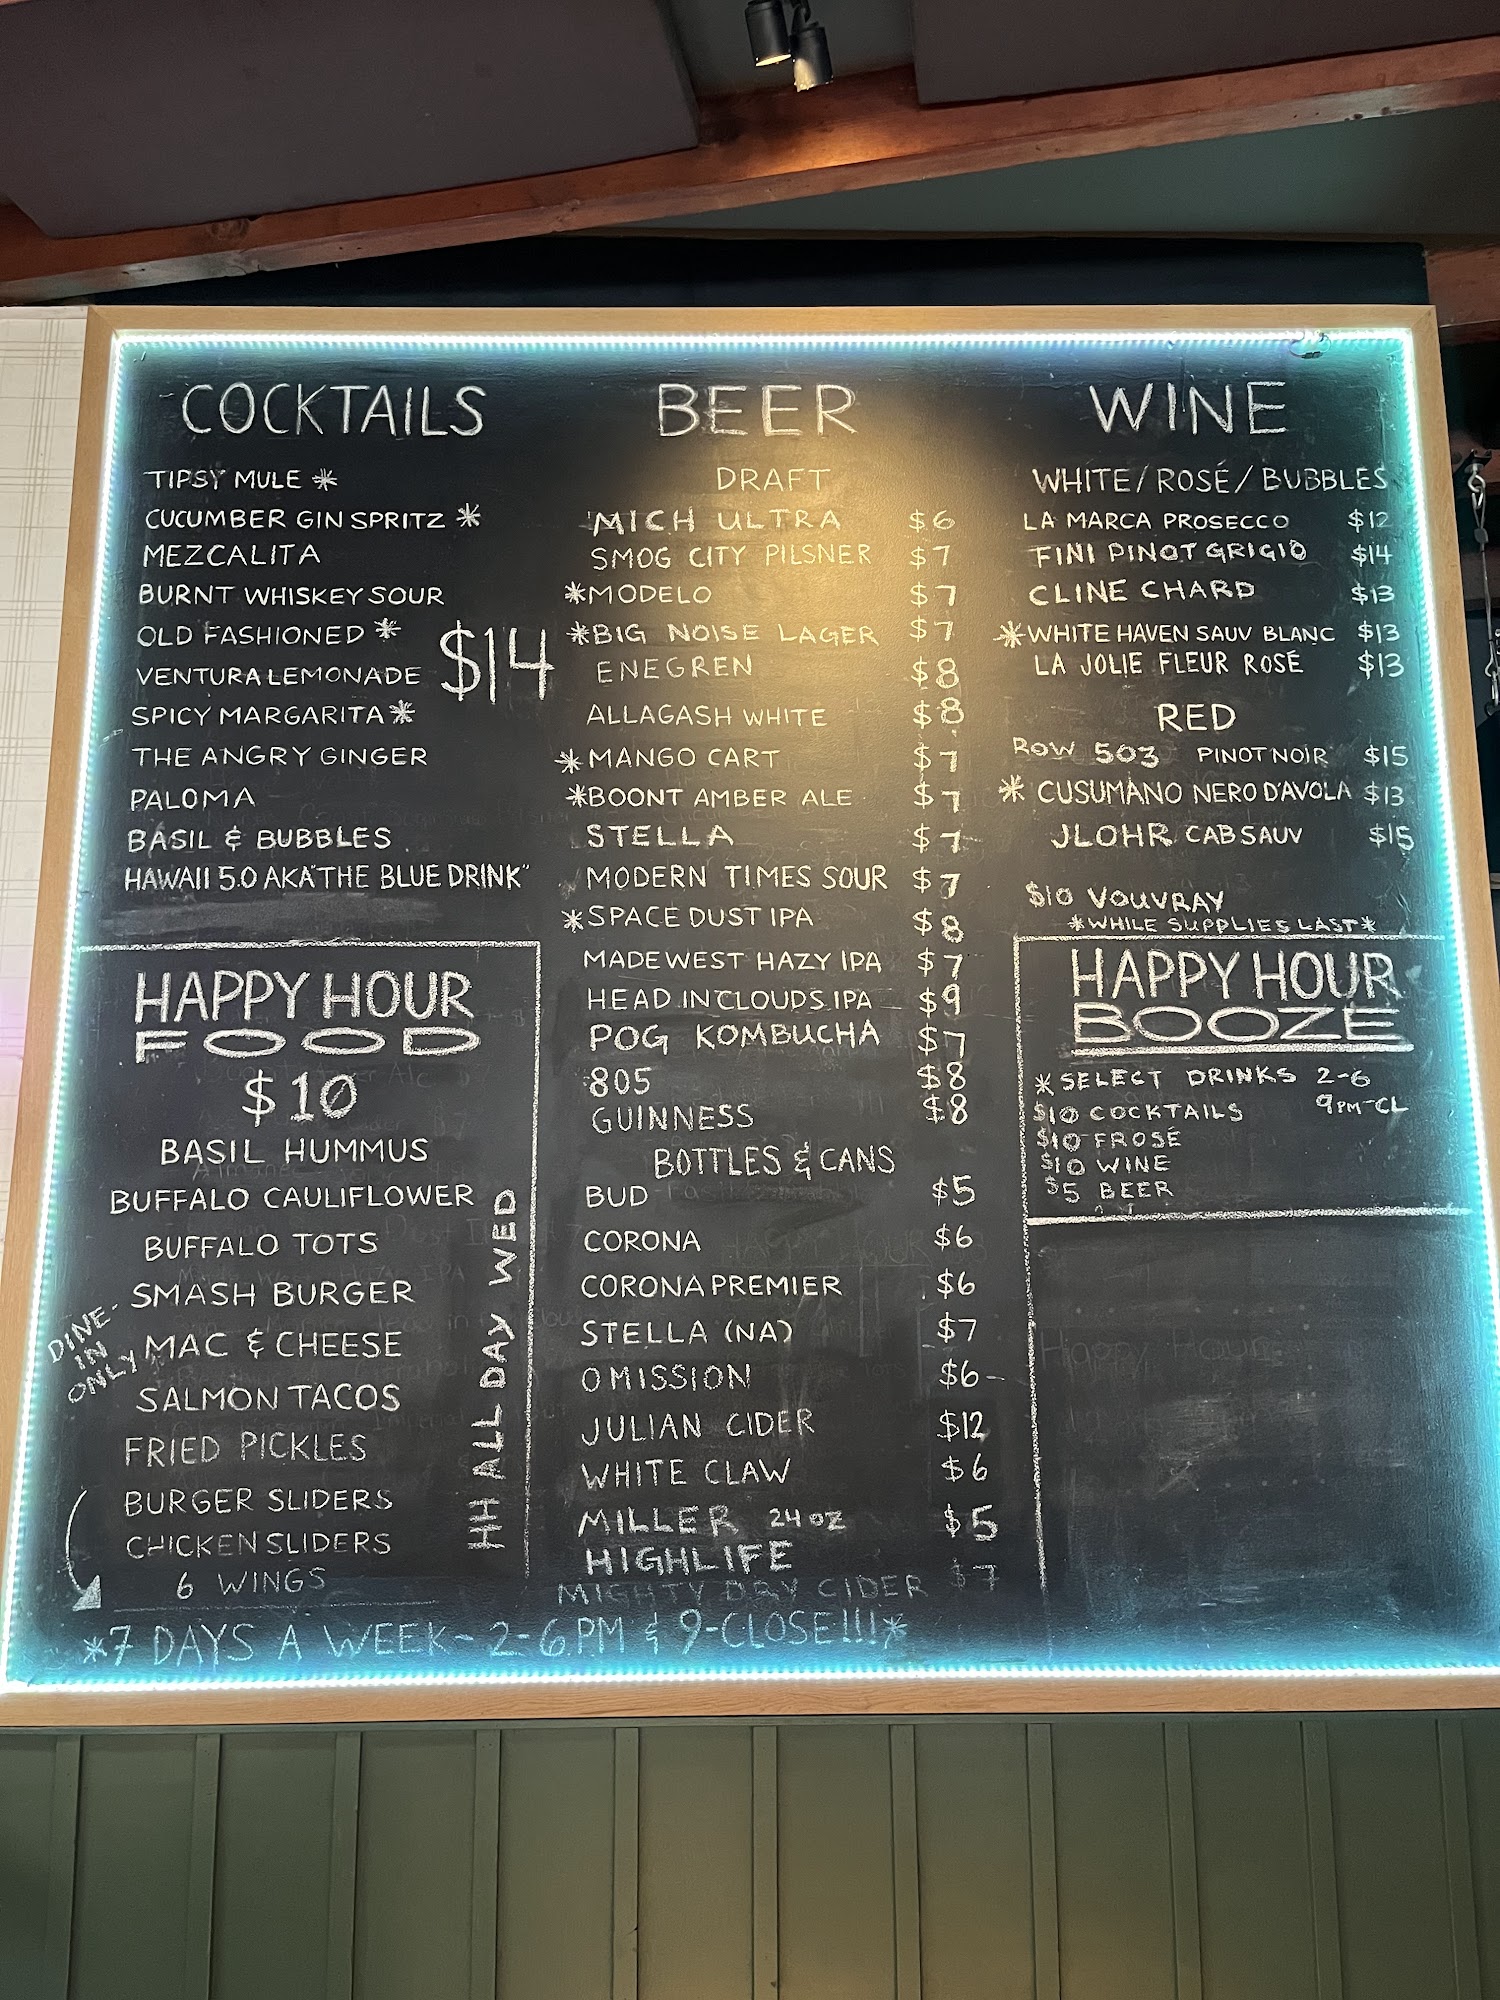 COCKTAILS
TIPSY MULE *
CUCUMBER GIN SPRITZ *
MEZCALITA
BURNT WHISKEY SOUR
OLD FASHIONED *
$14
VENTURA LEMONADE
SPICY MARGARITA *
THE ANGRY GINGER
PALOMA
BASIL & BUBBLES
HAWAII 5.0 AKA "THE BLUE DRINK"
HAPPY HOUR
FOOD
$10
BASIL HUMMUS
BUFFALO CAULIFLOWER
BUFFALO TOTS
SMASH BURGER
MAC & CHEESE
SALMON TACOS
FRIED PICKLES
BURGER SLIDERS
CHICKEN SLIDERS
6 WINGS
DINE-
IN
ONLY
HH ALL DAY WED
BEER
DRAFT
MICH ULTRA $6
SMOG CITY PILSNER $7
*MODELO $7
*BIG NOISE LAGER $7
ENEGREN $8
ALLAGASH WHITE $8
*MANGO CART $7
*BOONT AMBER ALE $7
STELLA $7
MODERN TIMES SOUR $7
*SPACE DUST IPA $8
MADEWEST HAZY IPA $7
HEAD IN CLOUDS IPA $9
POG KOMBUCHA $7
805 $8
GUINNESS $8
BOTTLES & CANS
BUD $5
CORONA $6
CORONA PREMIER $6
STELLA (NA) $7
OMISSION $6
JULIAN CIDER $12
WHITE CLAW $6
MILLER 24 OZ $5
HIGHLIFE
MIGHTY DRY CIDER $7
WINE
WHITE/ROSÉ/BUBBLES
LA MARCA PROSECCO $12
FINI PINOT GRIGIO $14
CLINE CHARD $13
*WHITE HAVEN SAUV BLANC $13
LA JOLIE FLEUR ROSÉ $13
RED
ROW 503 PINOT NOIR $15
* CUSUMANO NERO D'AVOLA $13
JLOHR CAB SAUV $15
$10 VOUVRAY
*WHILE SUPPLIES LAST*
HAPPY HOUR
BOOZE
*SELECT DRINKS 2-6
9PM-CL
$10 COCKTAILS
$10 FROSÉ
$10 WINE
$5 BEER
*7 DAYS A WEEK - 2-6 PM & 9-CLOSE!!!*